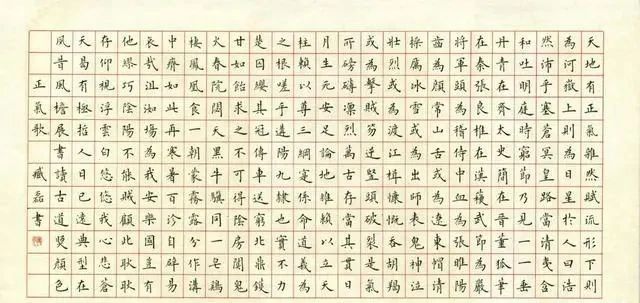 天地有正氣雜然賦流形下則
為河嶽上則為日星於人曰浩
然沛乎塞蒼冥皇路當清夷含
和吐明庭時窮節乃見一一垂
丹青在齊太史簡在晉董狐筆
在秦張良椎在漢蘇武節為嚴
將軍頭為嵇侍中血為張睢陽
齒為顏常山舌或為遼東帽清
操厲冰雪或為出師表鬼神泣
壯烈或為渡江楫慷慨吞胡羯
或為擊賊笏逆豎頭破裂是氣
所磅礴凜烈萬古存當其貫日
月生死安足論地維賴以立天
柱賴以尊三綱實係命道義為
之根嗟予遘陽九隸也實不力
楚囚纓其冠傳車送窮北鼎鑊
甘如飴求之不可得陰房闐鬼
火春院閟天黑牛驥同一皂雞
棲鳳凰食一朝蒙霧露分作溝
中瘠如此再寒暑百沴自辟易
哀哉沮洳場為我安樂國豈有
他繆巧陰陽不能賊顧此耿耿
存仰視浮雲白悠悠我心悲蒼
天曷有極哲人日已遠典型在
夙昔風檐展書讀古道照顏色
正氣歌 臧磊書